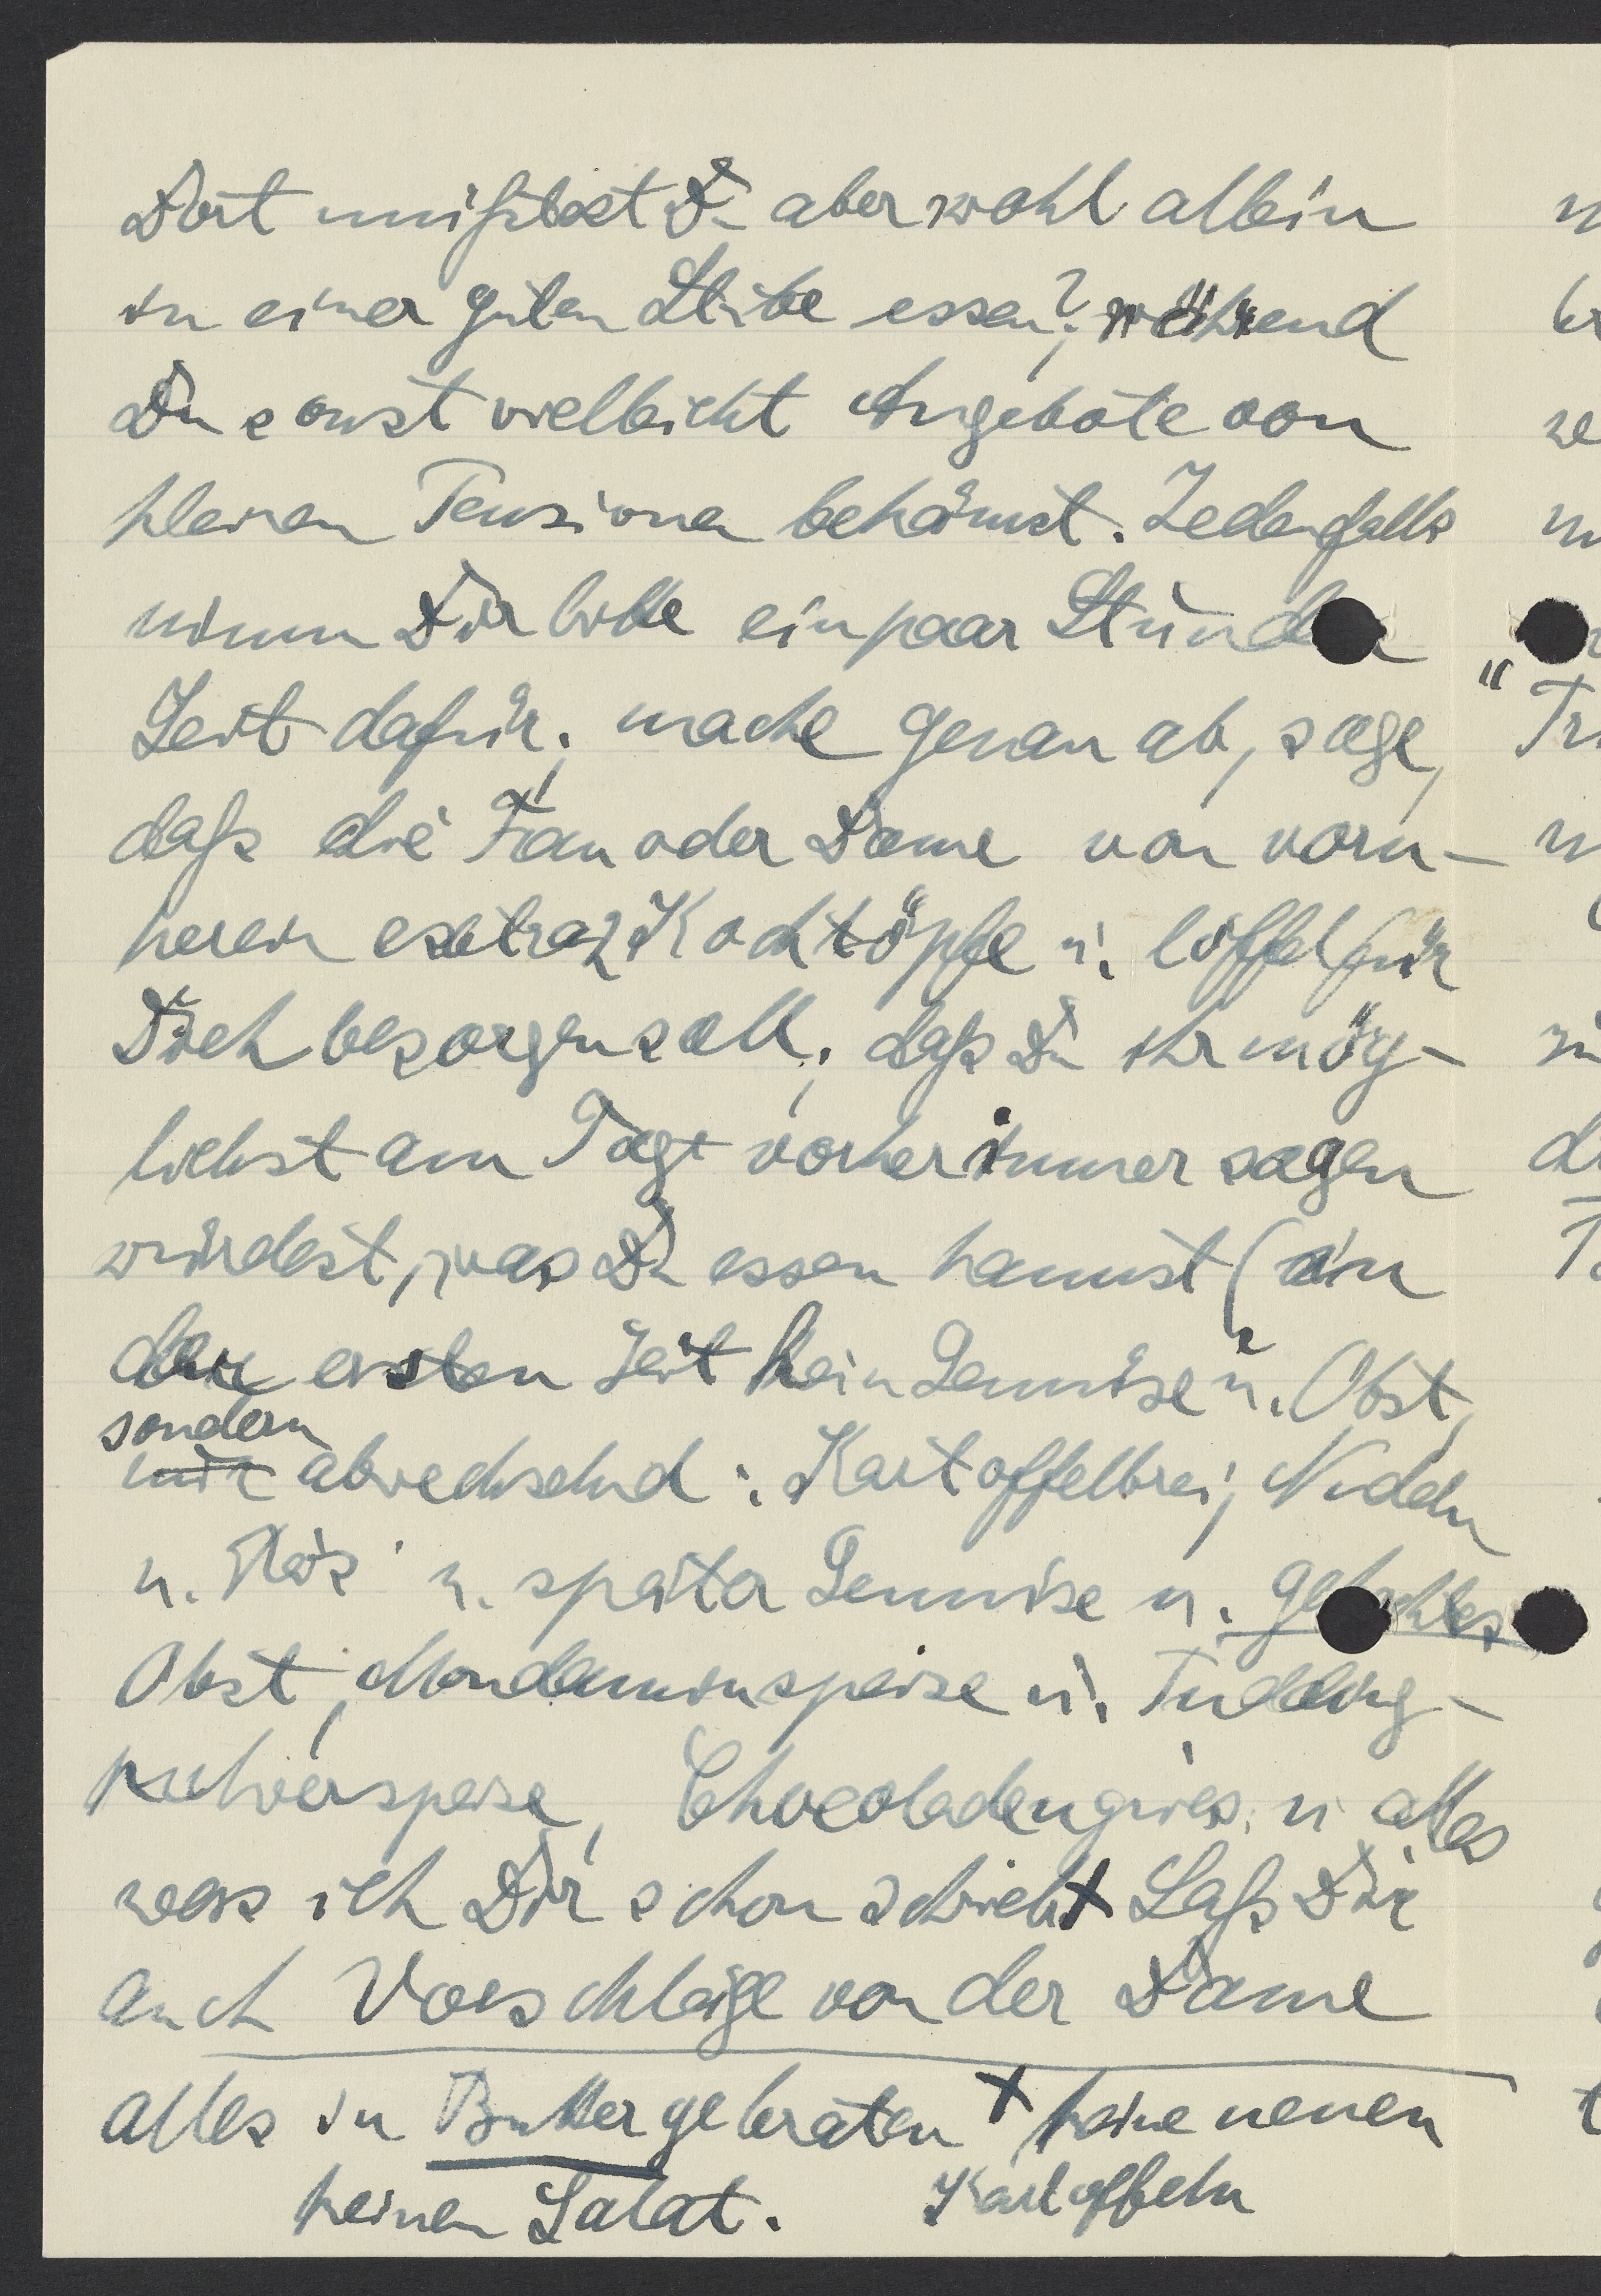 Dort müßtest Du aber wohl allein
in einer guten Stube essen?, während
Du sonst vielleicht Angebote von
kleinen Pensionen bekämst. Jedenfalls
nimm Dir bitte ein paar Stunden
Zeit dafür; mache genau ab, sage,
daß die Frau oder Dame von vorn-
herein extra Kochtöpfe u. löffel für
Dich besorgen soll; daß Du ihr mög-
lichst am Tage vorher immer sagen
würdest, was Du essen kannst (in
der ersten Zeit kein Gemüse u. Obst,
sondern
nur abwechselnd: Kartoffelbrei, Nudeln
u. Reis u. später Gemüse u. gekochtes
Obst, Mondaminspeise u. Pudding-
pulverspeise, Chocoladengries, u alles
was ich Dir schon schrieb+ Laß Dir
auch Vorschläge von der Dame
alles in Butter gebraten + keine neuen
keinen Salat. Kartoffeln